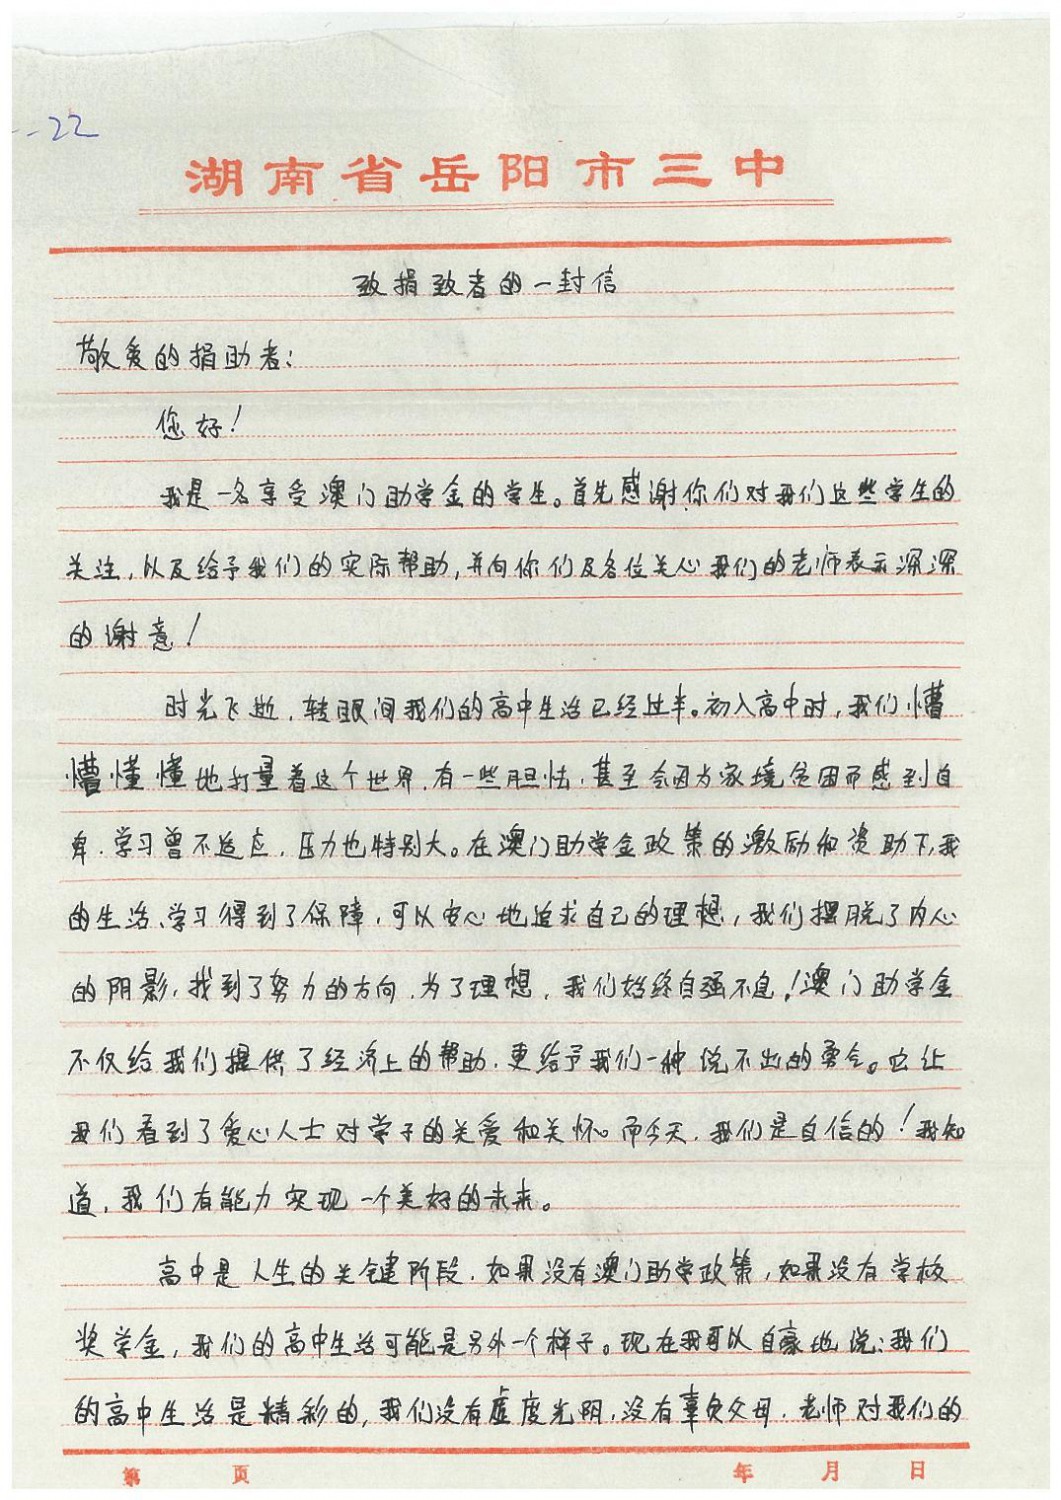 --22
湖南省岳阳市三中
致捐致者的一封信
敬爱的捐助者:
您好!
我是一名享受澳门助学金的学生。首先感谢你们对我们这些学生的
关注,以及给予我们的实际帮助,并向你们及各位关心我们的老师表示深深
的谢意!
时光飞逝,转眼间我们的高中生活已经过半。初入高中时,我们懵
懵懂懂地打量着这个世界,有一些胆怯,甚至会因为家境贫困而感到自
卑,学习曾不适应,压力也特别大。在澳门助学金政策的激励和资助下,我
的生活、学习得到了保障,可以安心地追求自己的理想,我们摆脱了内心
的阴影,找到了努力的方向,为了理想,我们始终自强不息!澳门助学金
不仅给我们提供了经济上的帮助,更给予我们一种说不出的勇气。它让
我们看到了爱心人士对学子的关爱和关怀。而今天,我们是自信的!我知
道,我们有能力实现一个美好的未来。
高中是人生的关键阶段,如果没有澳门助学政策,如果没有学校
奖学金,我们的高中生活可能是另外一个样子。现在我可以自豪地说:我们
的高中生活是精彩的,我们没有虚度光阴,没有辜负父母、老师对我们的
第 页 年 月 日